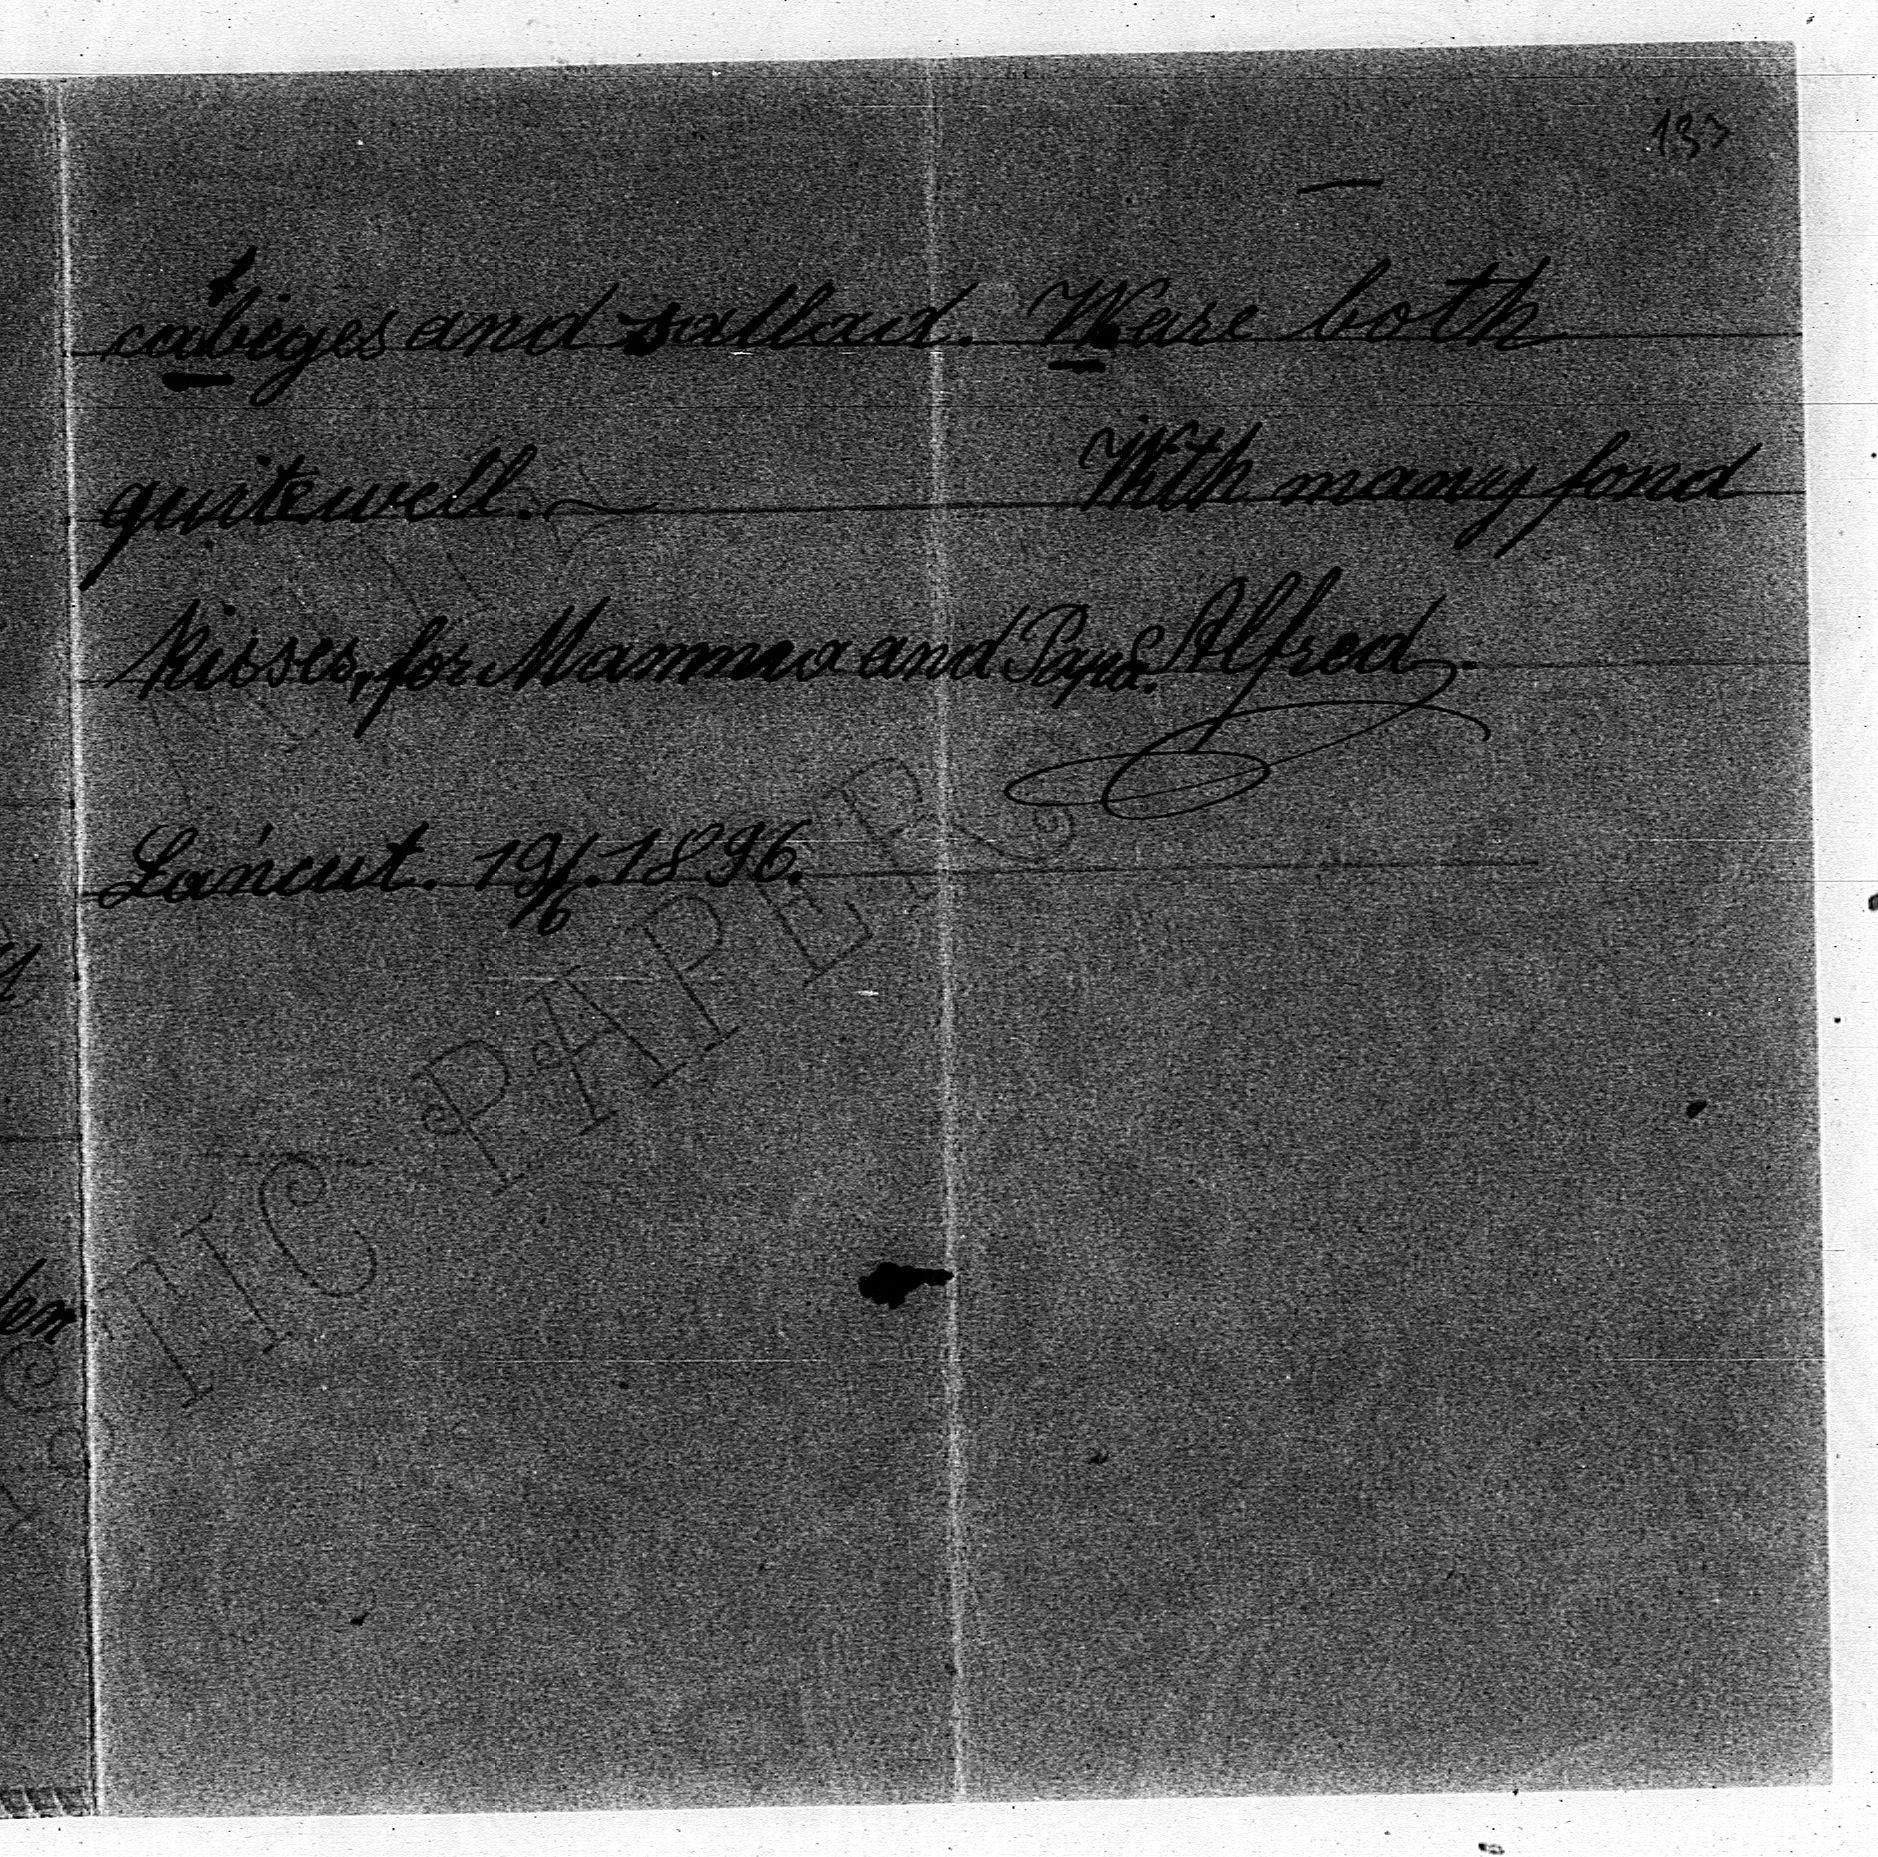 133
cabieges and sallad. We are both
quite well. ~ With many fond
kisses, for Mamma and Papa. Alfred.
Łańcut. 19/6. 1896.
TIC PAPER